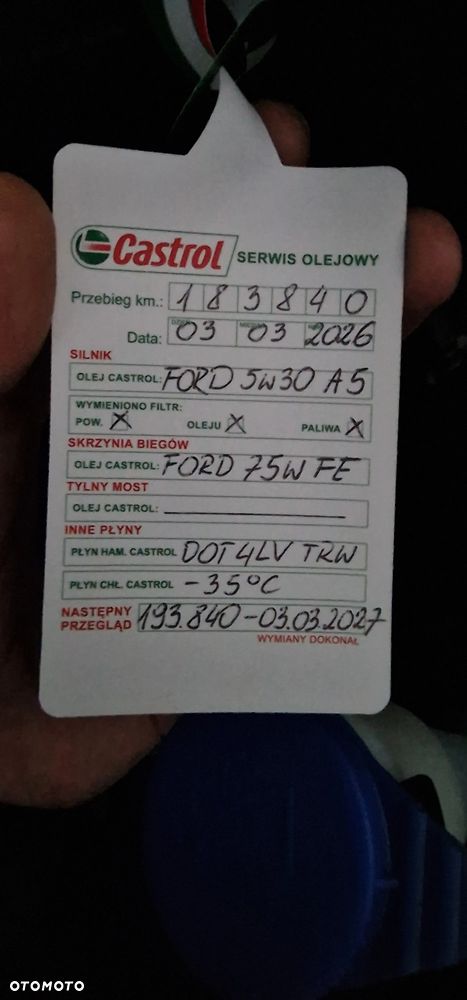 Castrol SERWIS OLEJOWY
Przebieg km.: 183840
Data: 03 03 2026
SILNIK
OLEJ CASTROL: FORD 5W30 A5
WYMIENIONO FILTR:
POW. X OLEJU X PALIWA X
SKRZYNIA BIEGÓW
OLEJ CASTROL: FORD 75W FE
TYLNY MOST
OLEJ CASTROL:
INNE PŁYNY
PŁYN HAM. CASTROL DOT 4LV TRW
PŁYN CHŁ. CASTROL -35°C
NASTĘPNY PRZEGLĄD 193.840-03.03.2027
WYMIANY DOKONAŁ
OTOMOTO